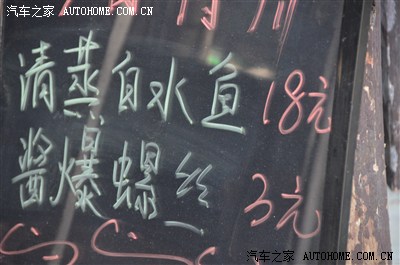 汽车之家 AUTOHOME.COM.CN
清蒸白水鱼 18元
酱爆螺丝 3元
汽车之家 AUTOHOME.COM.CN